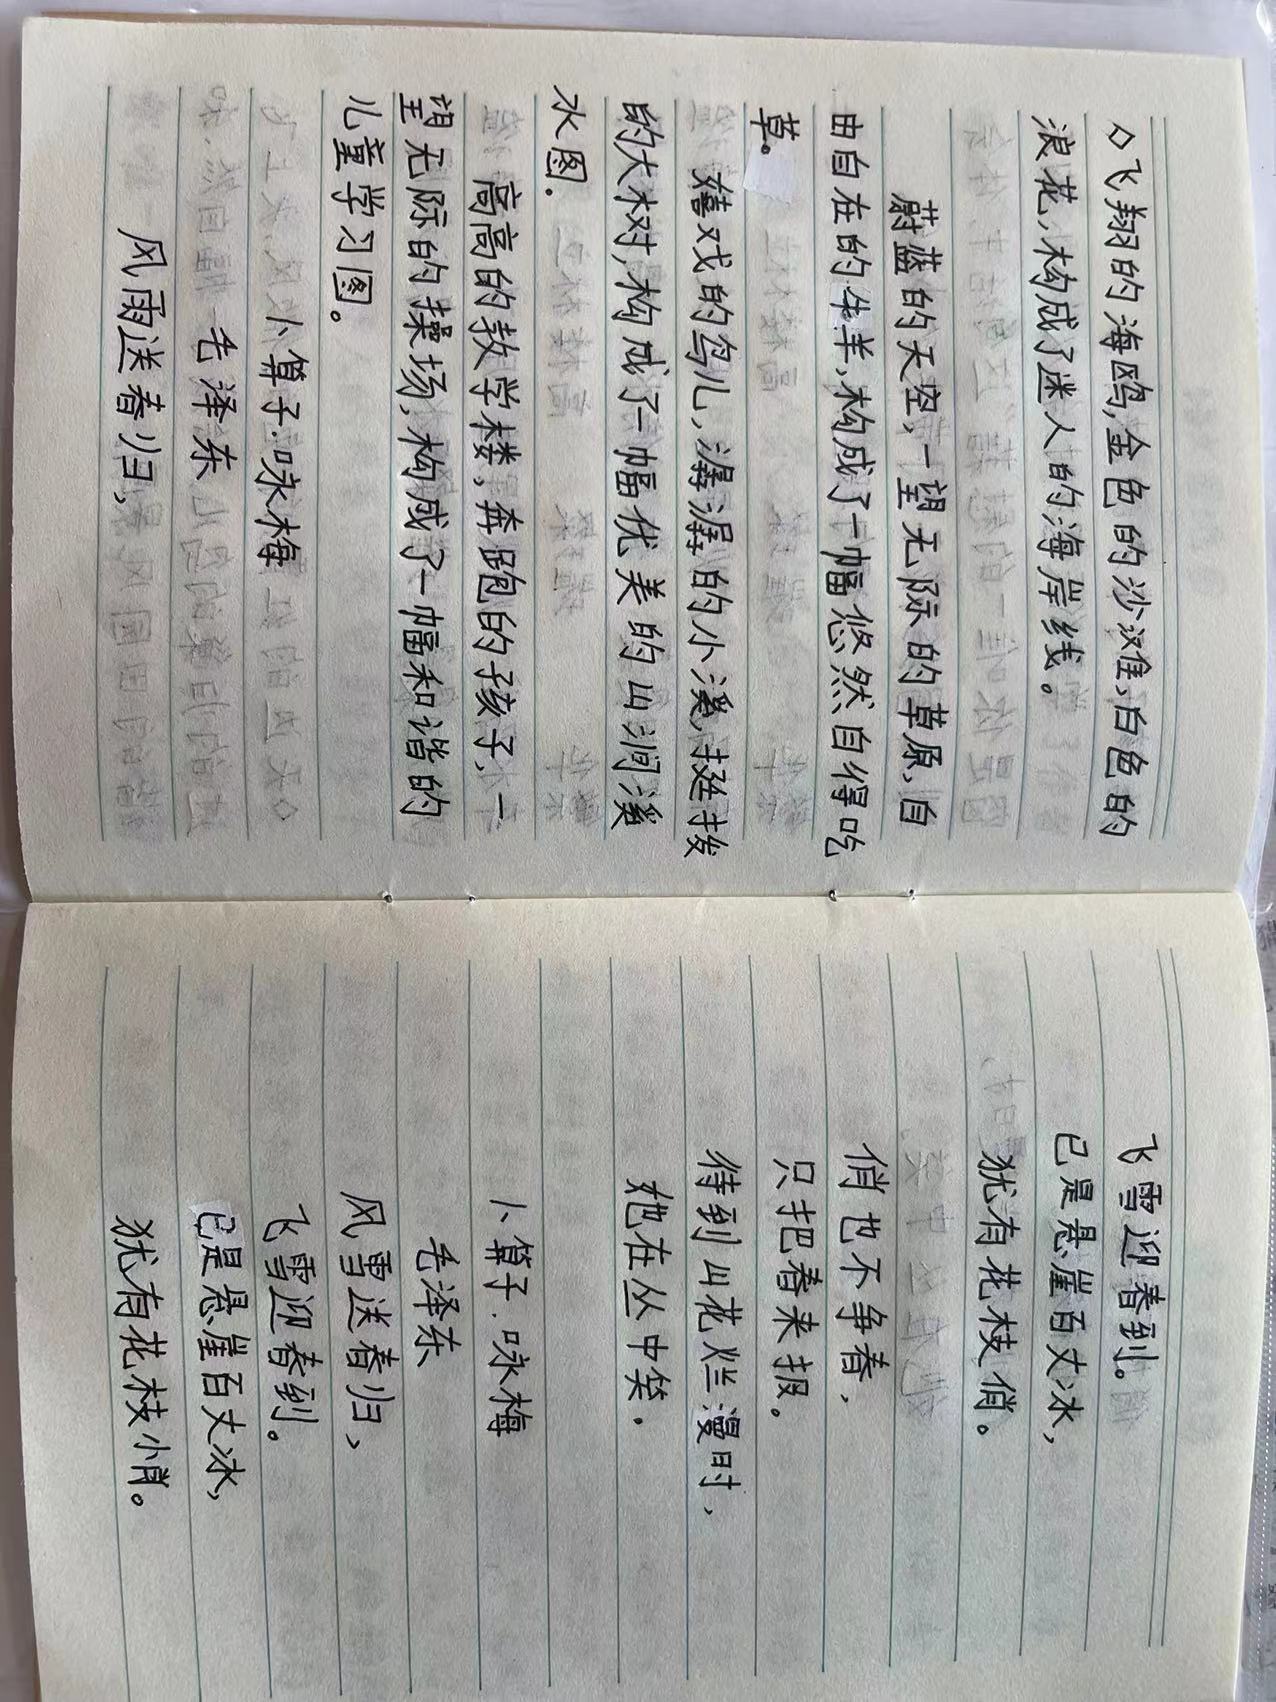 ◇飞翔的海鸥,金色的沙滩,白色的
浪花,构成了迷人的海岸线。
蔚蓝的天空,一望无际的草原,自
由自在的牛羊,构成了一幅悠然自得吃
草。
嬉戏的鸟儿,潺潺的小溪,挺拔
的大树,构成了一幅优美的山涧溪
水图.
高高的教学楼,奔跑的孩子,一
望无际的操场,构成了一幅和谐的
儿童学习图。
卜算子.咏梅
毛泽东
风雨送春归,
飞雪迎春到。
已是悬崖百丈冰,
犹有花枝俏。
俏也不争春,
只把春来报。
待到山花烂漫时,
她在丛中笑.
卜算子.咏梅
毛泽东
风雪送春归,
飞雪迎春到。
已是悬崖百丈冰,
犹有花枝俏。